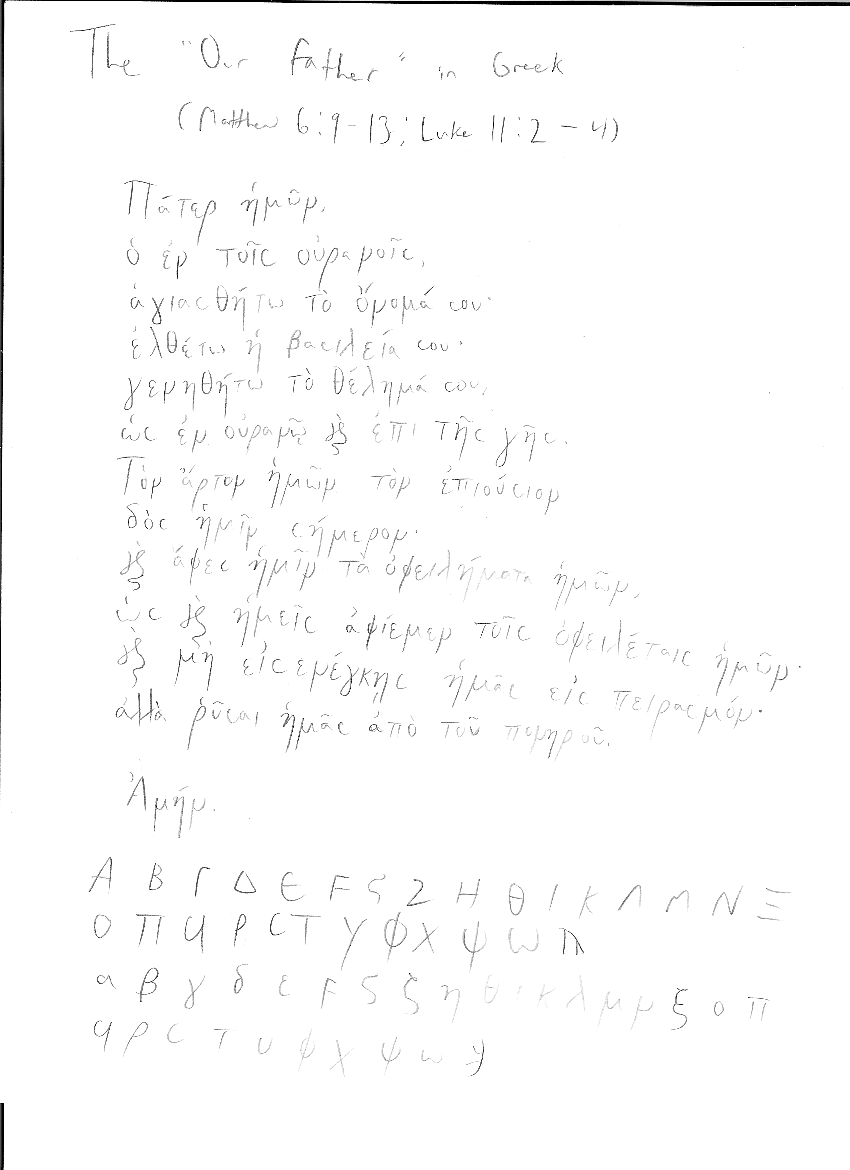 The "Our Father" in Greek
(Matthew 6:9-13; Luke 11:2-4)
Πάτερ ἡμῶν,
ὁ ἐν τοῖς οὐρανοῖς,
ἁγιασθήτω τὸ ὄνομά σου·
ἐλθέτω ἡ βασιλεία σου·
γενηθήτω τὸ θέλημά σου,
ὡς ἐν οὐρανῷ ϗ ἐπὶ τῆς γῆς.
Τὸν ἄρτον ἡμῶν τὸν ἐπιούσιον
δὸς ἡμῖν σήμερον·
ϗ ἄφες ἡμῖν τὰ ὀφειλήματα ἡμῶν,
ὡς ϗ ἡμεῖς ἀφίεμεν τοῖς ὀφειλέταις ἡμῶν·
ϗ μὴ εἰσενέγκῃς ἡμᾶς εἰς πειρασμόν·
ἀλλὰ ῥῦσαι ἡμᾶς ἀπὸ τοῦ πονηροῦ.
Ἀμήν.
Α Β Γ Δ Ε Ϝ Ϛ Ζ Η Θ Ι Κ Λ Μ Ν Ξ
Ο Π Ϥ Ρ Ϲ Τ Υ Φ Χ Ψ Ω Ϡ
α β γ δ ε ϝ ϛ ζ η θ ι κ λ μ ν ξ ο π
ϥ ρ ϲ τ υ φ χ ψ ω ϡ